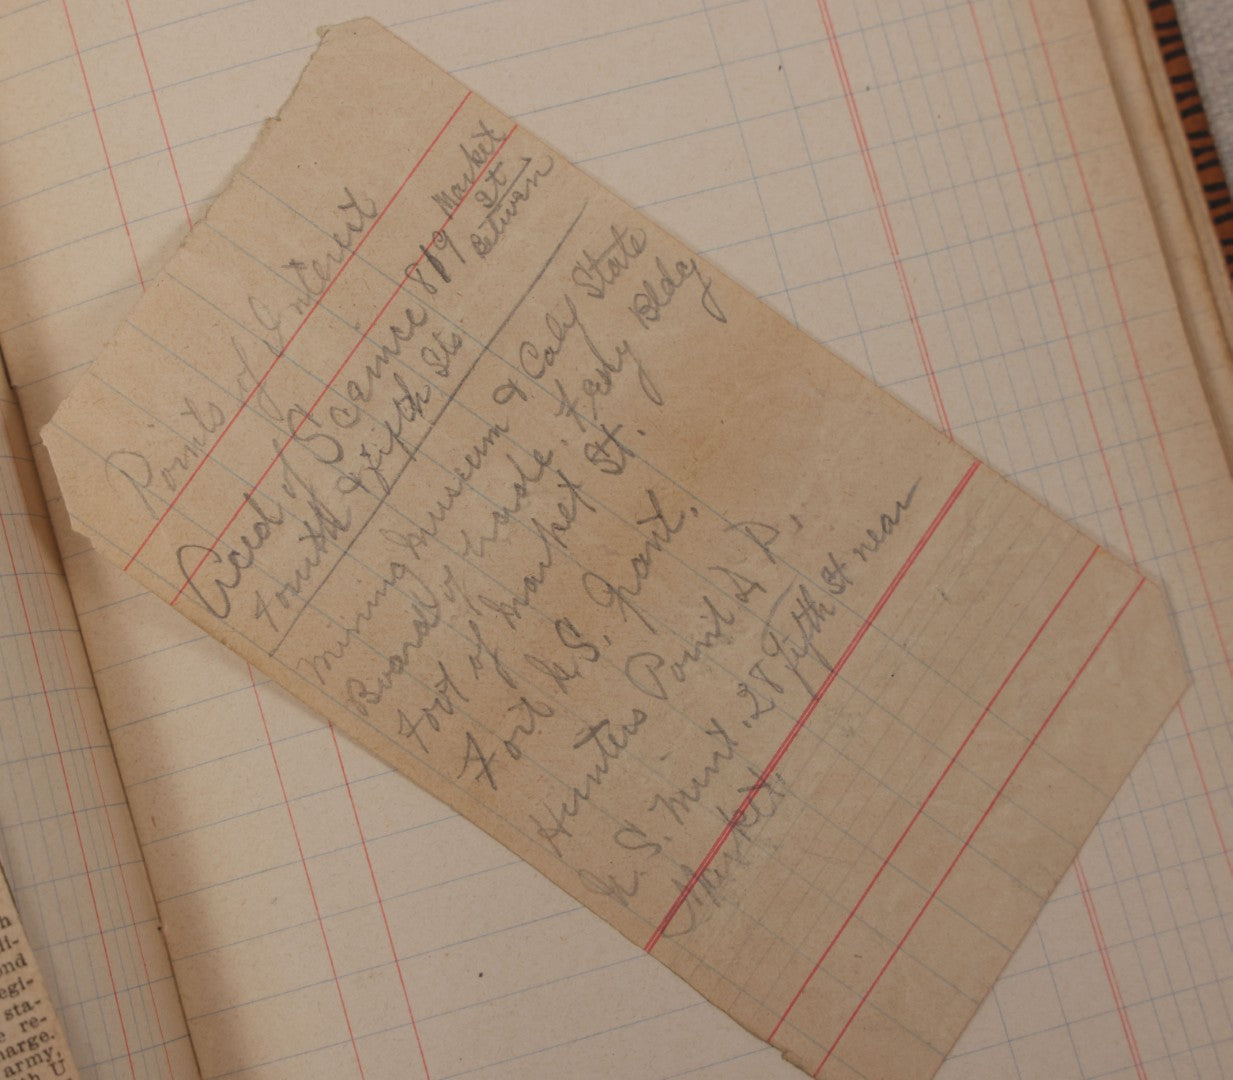 Points of Interest
Aced of Scaince 819 Market
St
Between
Fourth & Fifth Sts.
Mining Museum & Caly State
Board of Trade. Fery Bldg
Foot of Market St.
Fort U.S. Grant.
Hunters Point D. P.
U. S. Mint. 28 Fifth St near
Market.
h
li-
ond
egi-
sta-
e re-
harge.
army,
th U